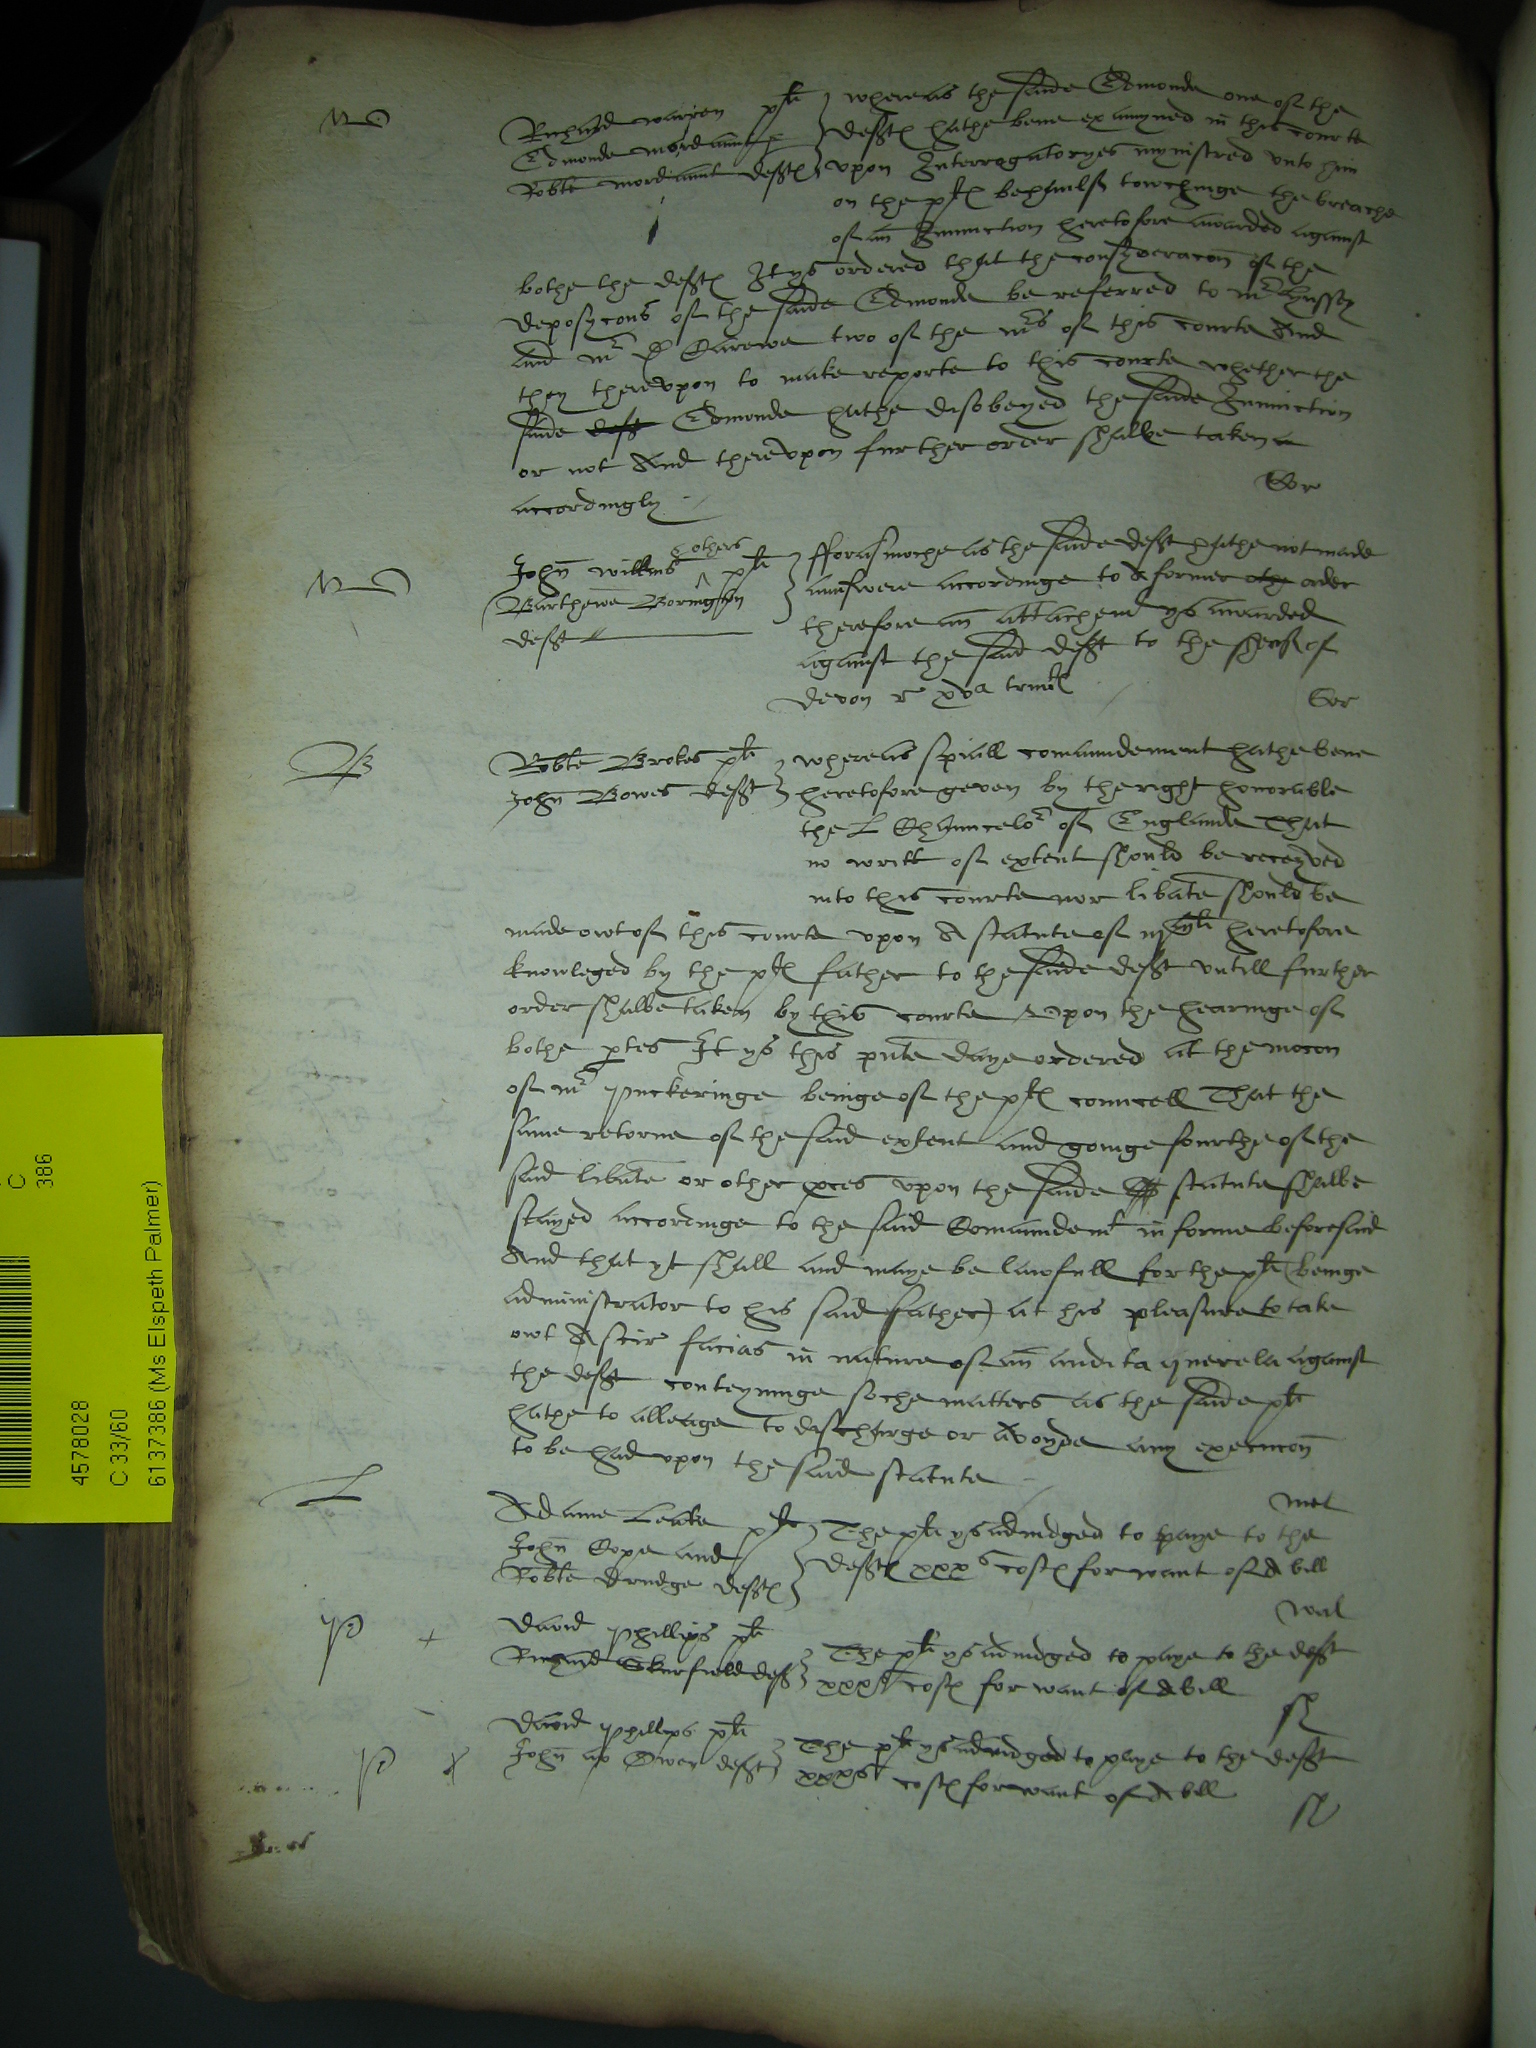 W
Richard warren plt
Edmonde mordaunt &
Robte mordaunt deftes
whereas the saide Edmonde one of the
deftes hathe bene examyned in this courte
upon Interrogatoryes mynistred unto him
on the pltes behaulf towchinge the breache
of an Iniunction heretofore awarded against
bothe the deftes It ys ordered that the consyderacon of the
deposycons of the saide Edmonde be referred to mr
and mr D Carewe two of the mrs of this courte And
they thereupon to make reporte to this courte whether the
saide deft Edmonde hathe disobeyed the saide Iniunction
or not And thereupon further order shalbe taken
accordingly
W
John willms & others plt
Barthewe Borington
deft
fforasmoche as the saide deft hathe not made
aunswere accordinge to A former othe order
therefore an attachemt ys awarded
against the said deft to the sherif of
devon r xva trinitis
B
Robte Brokes plt
John Bowes deft
whereas spiall comaundement hathe bene
heretofore geven by the right honorable
the L Chauncelor of Englande That
no writt of extent should be receyved
into this courte nor libate should be
made owt of this courte upon A statute of heretofore
knowleged by the pltes father to the saide deft untill further
order shalbe taken by this courte Upon the hearinge of
bothe ptes It ys this pnte daye ordered at the mocon
of mr Puckeringe beinge of the pltes councell That the
same retorne of the said extent and goinge fourthe of the
said libate or other pces upon the saide statute shalbe
stayed accordinge to the said Comaundemt in forme beforesaid
And that yt shall and maye be lawfull for the plt (beinge
administrator to his said father) at his pleasure to take
owt A scir facias in nature of an audita querela against
the deft conteyninge soche matters as the saide plt
hathe to alleage to discharge or avoyde any execucon
to be had upon the said statute
L
Adame Leake plt
John Cope and
Robte Drudge deftes
The plt ys adiudged to paye to the
deftes xxxs costes for want of A bill
wal
P +
David Phillips plt
Richard Skurfield deft
The plt ys adiudged to paye to the deft
xxxs costes for want of A bill
P x
David Phillips plt
John ap Owen deft
The plt ys adiudged to paye to the deft
xxxs costes for want of A bill
C
386
4578028
C 33/60
6137386 (Ms Elspeth Palmer)